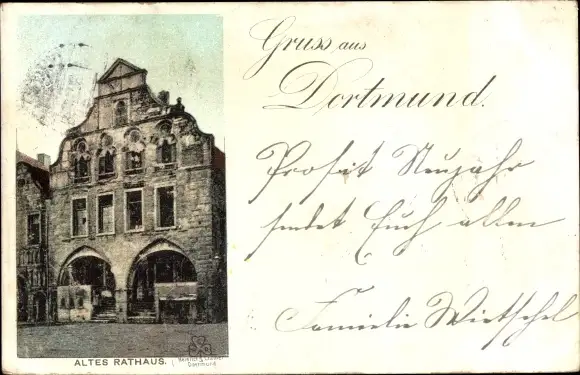 Gruss aus
Dortmund.
Prosit Neujahr
sendet Euch allen
Familie Wietschel
ALTES RATHAUS.
Dortmund